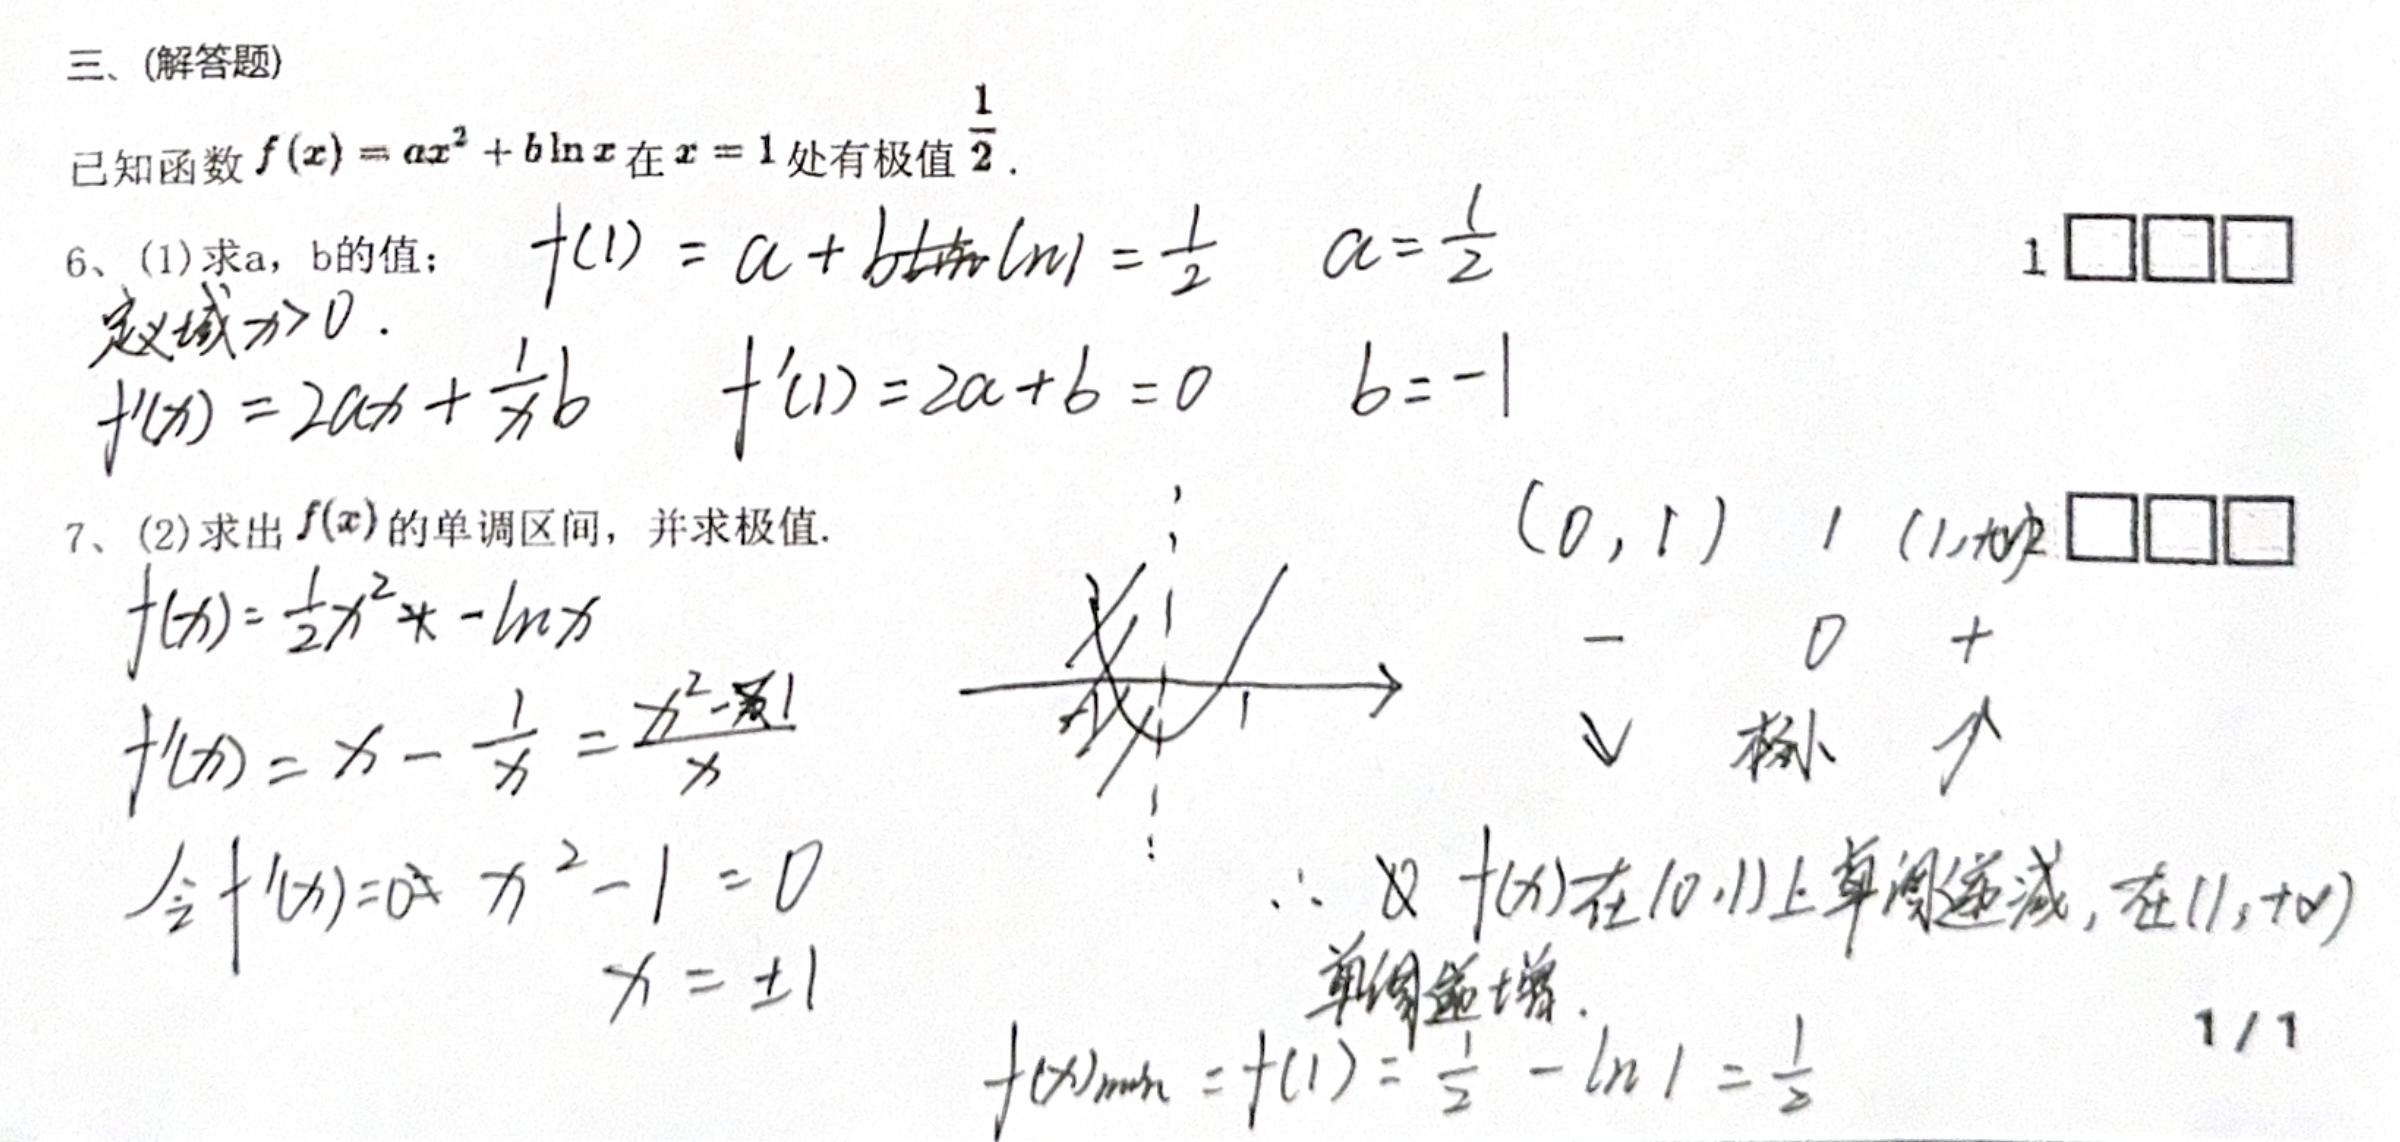 三、(解答题)
已知函数 f(x) = ax² + b ln x 在 x = 1 处有极值 1/2 .
6、(1)求a，b的值； f(1) = a + b ln1 = 1/2 a = 1/2 1
定义域 x>0 .
f'(x) = 2ax + 1/x b f'(1) = 2a + b = 0 b = -1
7、(2)求出 f(x) 的单调区间，并求极值. (0, 1) 1 (1, +∞) 2
f(x) = 1/2 x² - ln x - 0 +
f'(x) = x - 1/x = (x² - 1)/x 1 ↘ 极小 ↗
令 f'(x) = 0 x² - 1 = 0
x = ±1
∴ f(x) 在 (0,1) 上单调递减, 在 (1, +∞)
单调递增.
f(x)min = f(1) = 1/2 - ln 1 = 1/2
1 / 1